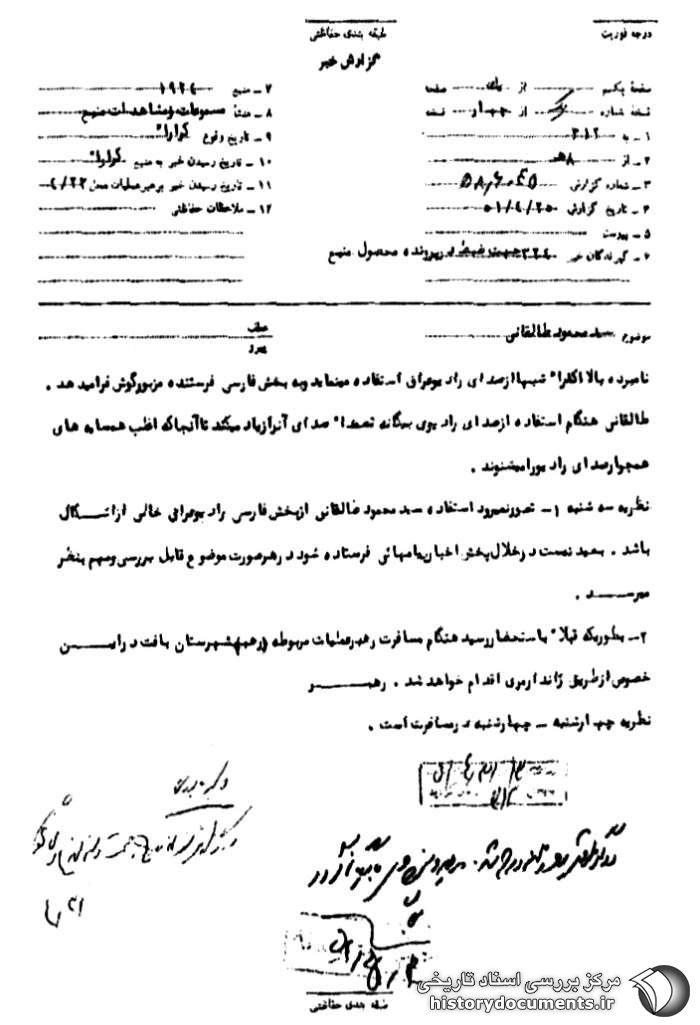 درجه فوریت
طبقه بندی حفاظتی
گزارش خبر
صفحه یکم از یک صفحه
نسخه شماره از چهار نسخه
۱ – به ۳۱۲
۲ – از ۸هـ
۳ – شماره گزارش
۴ – تاریخ گزارش ۵۱/۴/۲۵
۵ – پیوست
۶ – گیرندگان خبر ۳۲۴ جهت ضبط در پرونده محصول منبع
۷ – منبع ۱۹۲۴
۸ – منشأ مسموعات و مشاهدات منبع
۹ – تاریخ وقوع کراراً
۱۰ – تاریخ رسیدن خبر به منبع کراراً
۱۱ – تاریخ رسیدن خبر به رهبر عملیات محل ۴/۲۲
۱۲ – ملاحظات حفاظتی
موضوع سید محمود طالقانی
عطف
پیرو
نامبرده بالا اکثراً شبها از صدای رادیو عراق استفاده مینماید و به بخش فارسی فرستنده مزبور گوش فرامیدهد .
طالقانی هنگام استفاده از صدای رادیوی بیگانه تعمداً صدای آنرا زیاد میکند تا آنجا که اغلب همسایه های
همجوار صدای رادیو را میشنوند .
نظریه سه شنبه ۱– تصور نمیرود استفاده سید محمود طالقانی از پخش فارسی رادیو عراق خالی از اشکال
باشد . بعید نیست در خلال پخش اخبار پیامهائی فرستاده شود در هر صورت موضوع قابل بررسی و مهم بنظر
میرسد .
۲– بطوریکه قبلاً باستحضار رسید هنگام مسافرت رهبر عملیات مربوطه (رهبر) شهرستان بافت در این
خصوص از طریق ژاندارمری اقدام خواهد شد . رهبر
نظریه چهارشنبه – چهارشنبه در مسافرت است .
طبقه بندی حفاظتی
مرکز بررسی اسناد تاریخی
historydocuments.ir